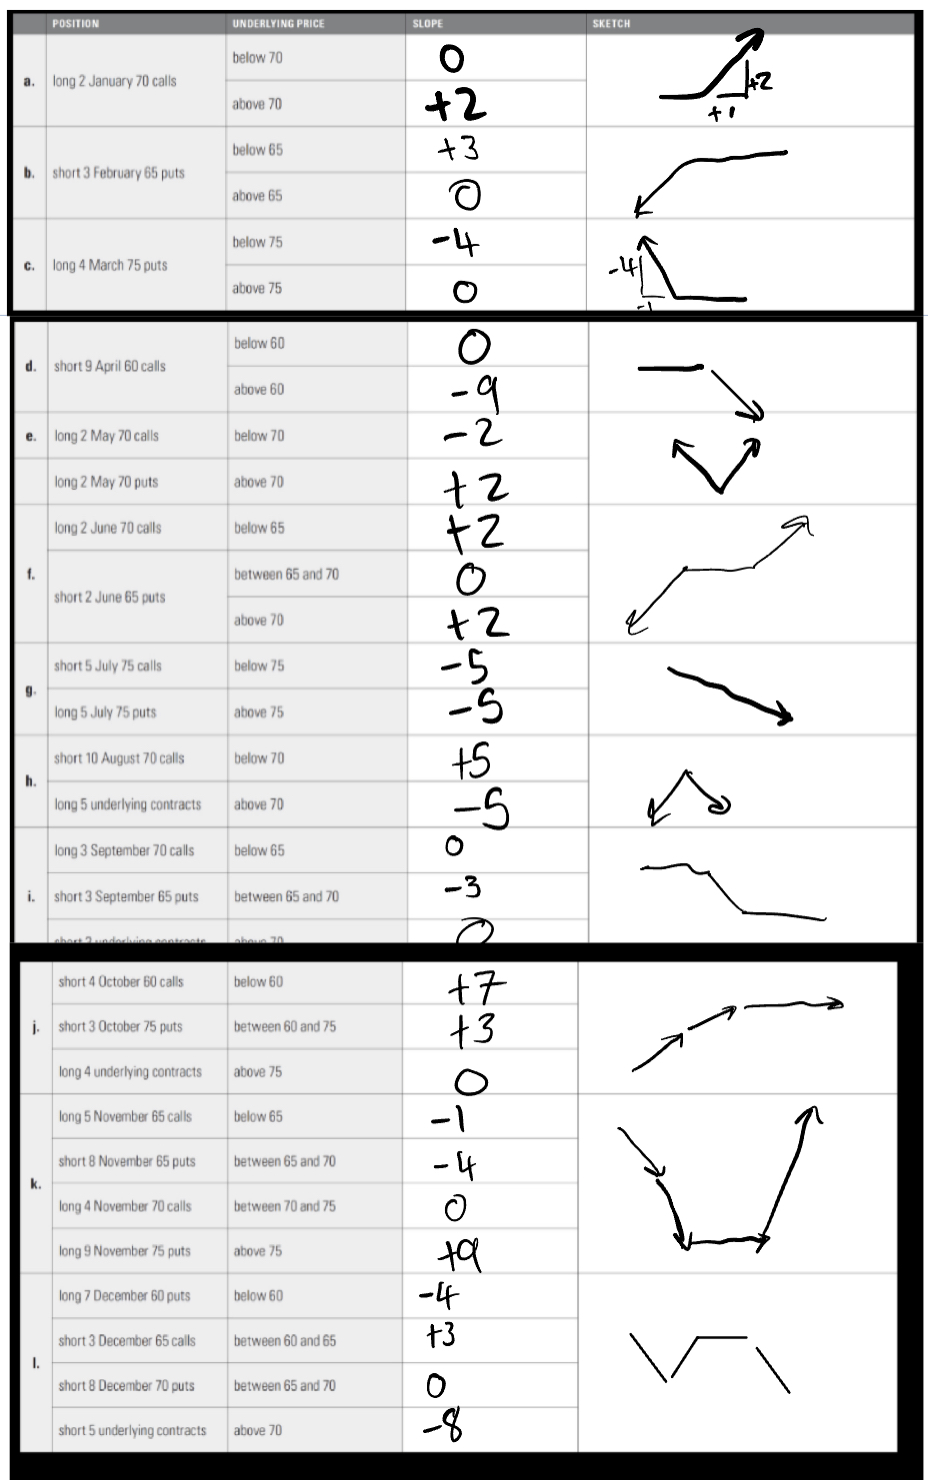 POSITION UNDERLYING PRICE SLOPE SKETCH
a. long 2 January 70 calls below 70 0
above 70 +2
+2
+1
b. short 3 February 65 puts below 65 +3
above 65 0
c. long 4 March 75 puts below 75 -4
above 75 0
-4
-1
d. short 9 April 60 calls below 60 0
above 60 -9
e. long 2 May 70 calls below 70 -2
long 2 May 70 puts above 70 +2
f. long 2 June 70 calls below 65 +2
between 65 and 70 0
short 2 June 65 puts
above 70 +2
g. short 5 July 75 calls below 75 -5
long 5 July 75 puts above 75 -5
h. short 10 August 70 calls below 70 +5
long 5 underlying contracts above 70 -5
i. long 3 September 70 calls below 65 0
short 3 September 65 puts between 65 and 70 -3
short 3 underlying contracts above 70 0
j. short 4 October 60 calls below 60 +7
short 3 October 75 puts between 60 and 75 +3
long 4 underlying contracts above 75 0
k. long 5 November 65 calls below 65 -1
short 8 November 65 puts between 65 and 70 -4
long 4 November 70 calls between 70 and 75 0
long 9 November 75 puts above 75 +9
l. long 7 December 60 puts below 60 -4
short 3 December 65 calls between 60 and 65 +3
short 8 December 70 puts between 65 and 70 0
short 5 underlying contracts above 70 -8